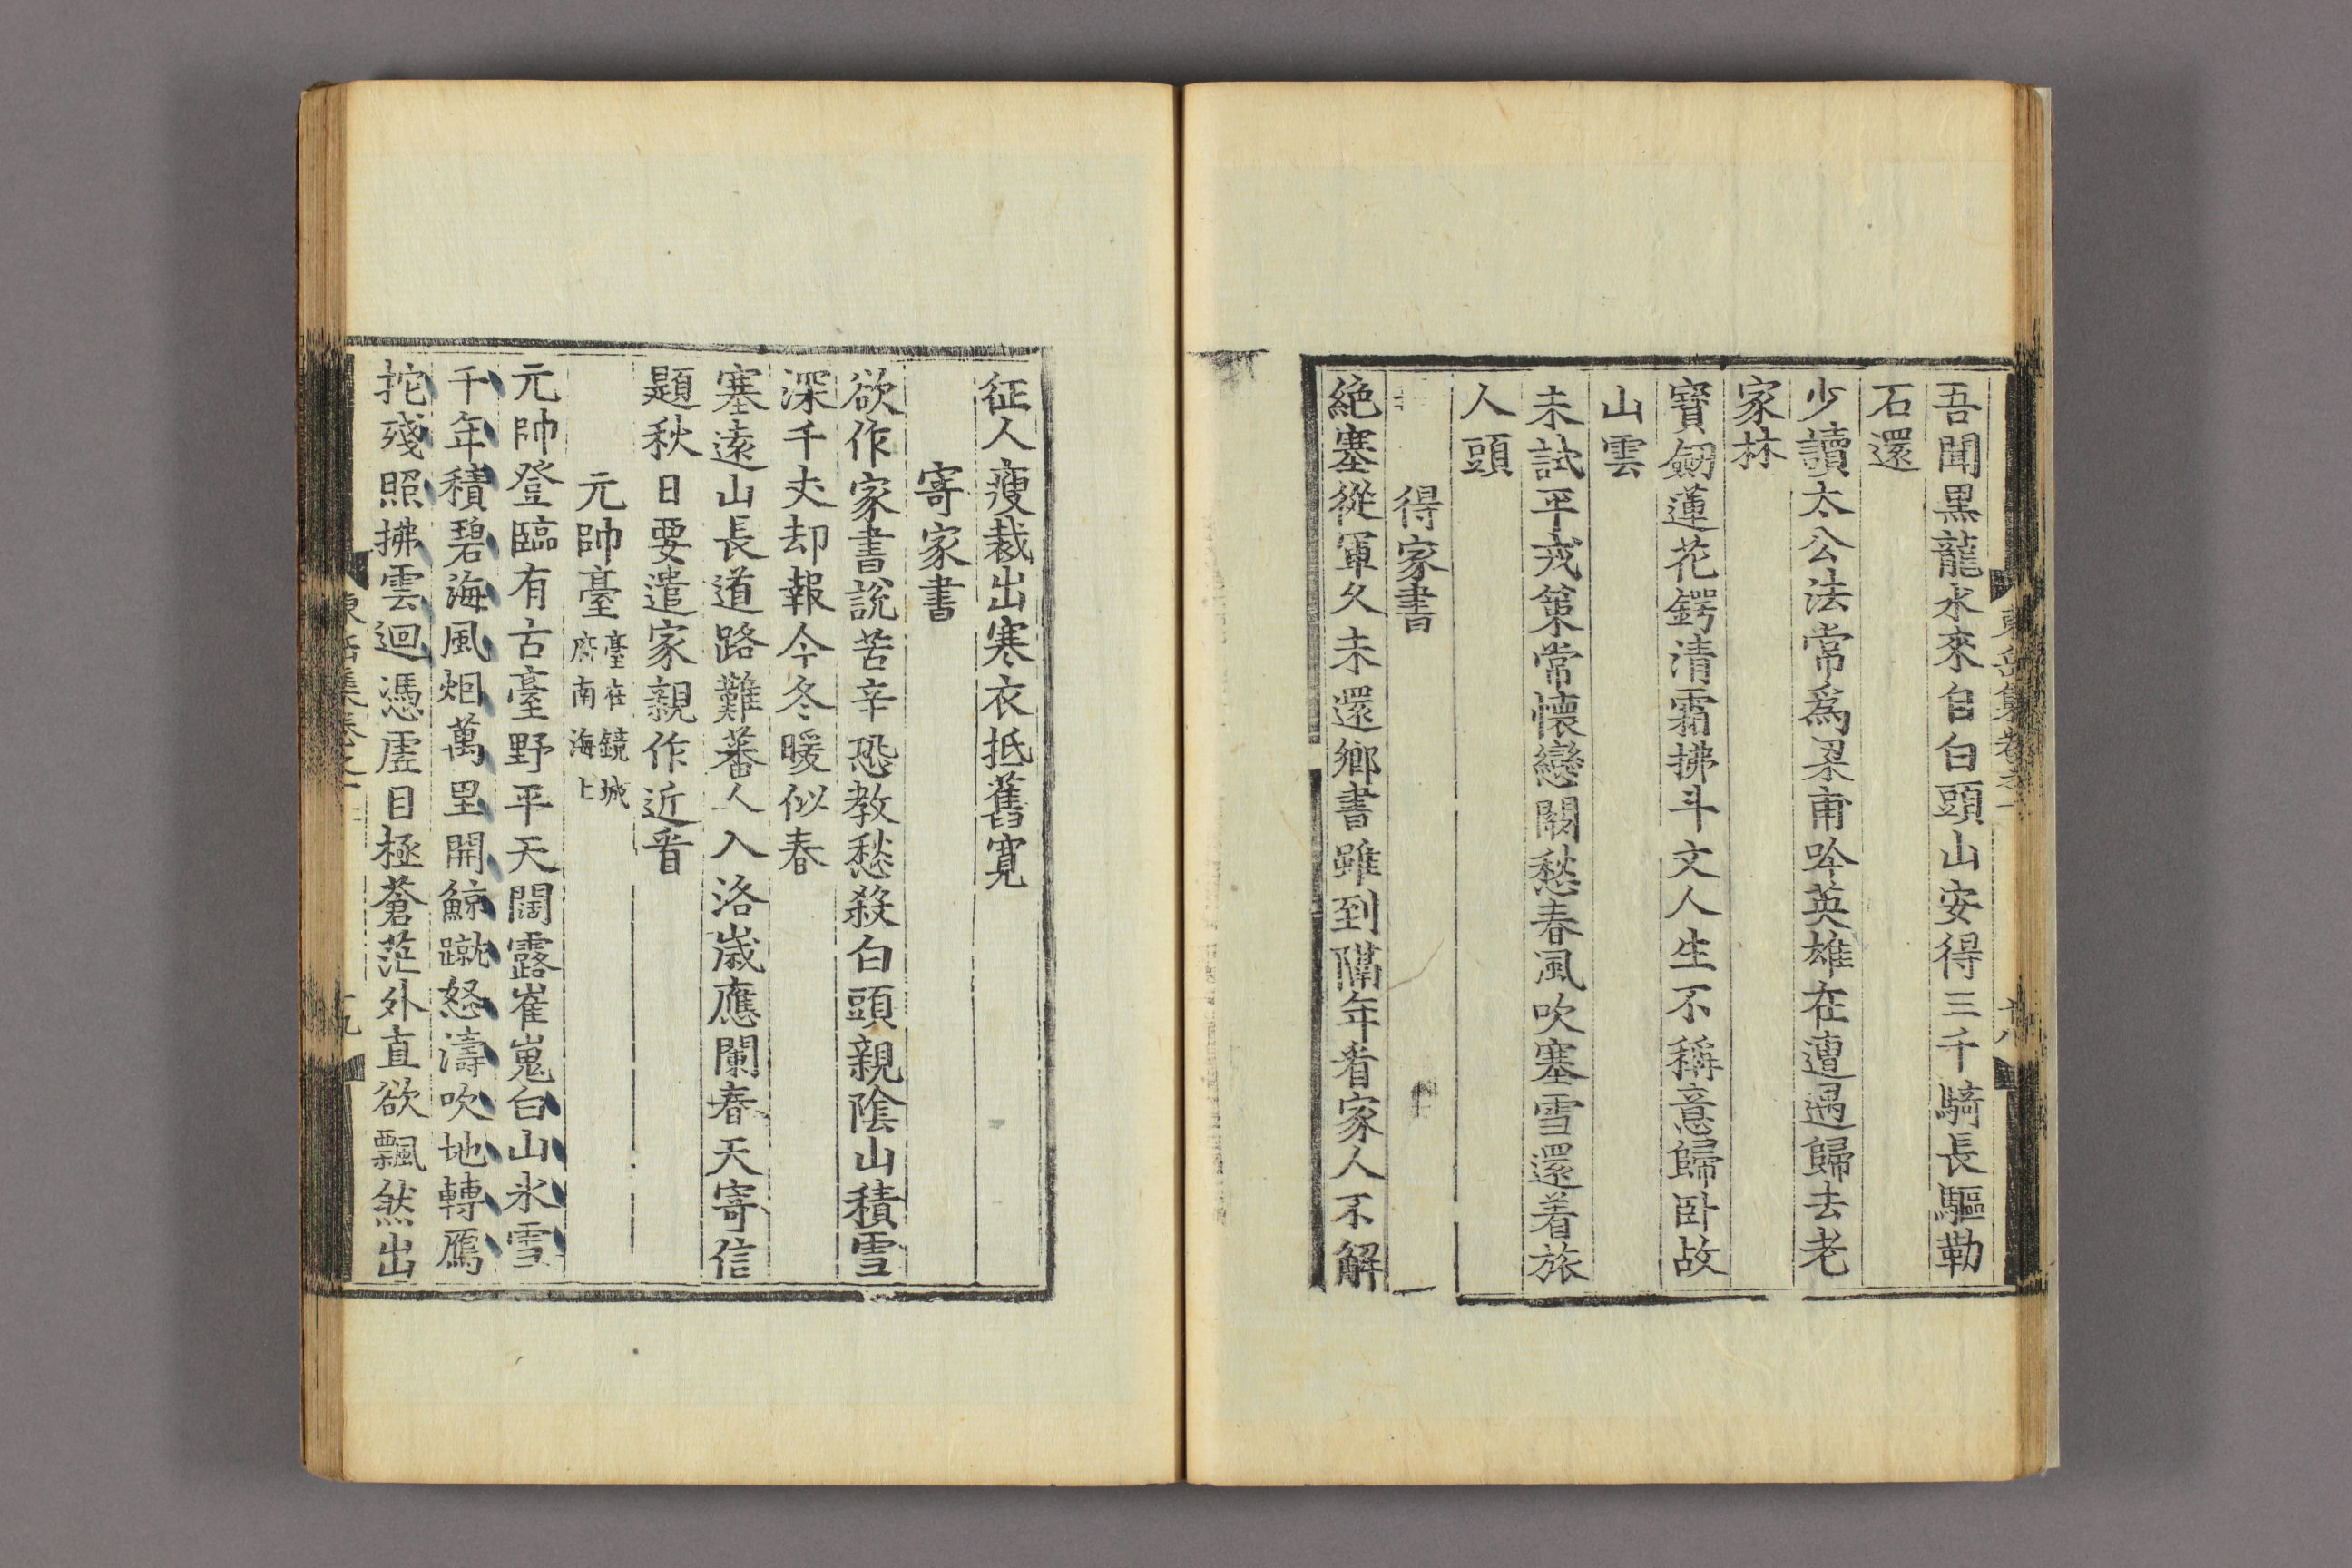 吾聞黒龍水來自白頭山安得三千騎長驅勒
石還
少讀太公法常爲梁甫吟英雄在遭遇歸去老
家林
寶劒蓮花鍔清霜拂斗文人生不稱意歸卧故
山雲
未試平戎策常懷戀闕愁春風吹塞雪還着旅
人頭
得家書
絶塞從軍久未還鄉書雖到隔年看家人不解
征人瘦裁出寒衣抵舊寛
寄家書
欲作家書說苦辛恐教愁殺白頭親陰山積雪
深千丈却報今冬暖似春
塞遠山長道路難蕃人入洛歲應闌春天寄信
題秋日要遣家親作近看
元帥臺 臺在鏡城府南海上
元帥登臨有古臺野平天闊露崔嵬白山氷雪
千年積碧海風烟萬里開鯨蹴怒濤吹地轉鴈
拕殘照拂雲迴憑虛目極蒼茫外直欲飄然出